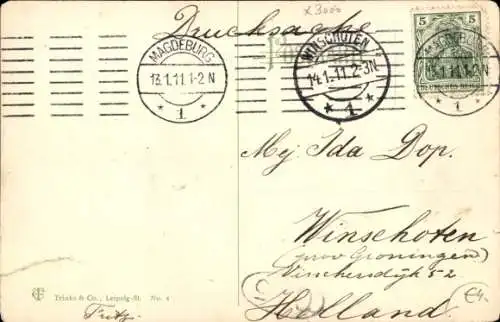 x3000
Drucksache
MAGDEBURG
13.1.11.1-2N
* 1 *
WINSCHOTEN
14.1.11.2-3N
* 1 *
5 5
MAGDEBURG
13.1.11.1-2N
* 1 *
DEUTSCHES REICH
Mej. Ida Dop.
Winschoten
(prov Groningen)
Vinschersdijk 52
Holland.
€4.
Trinks & Co., Leipzig-St. No. 4
Fritz.